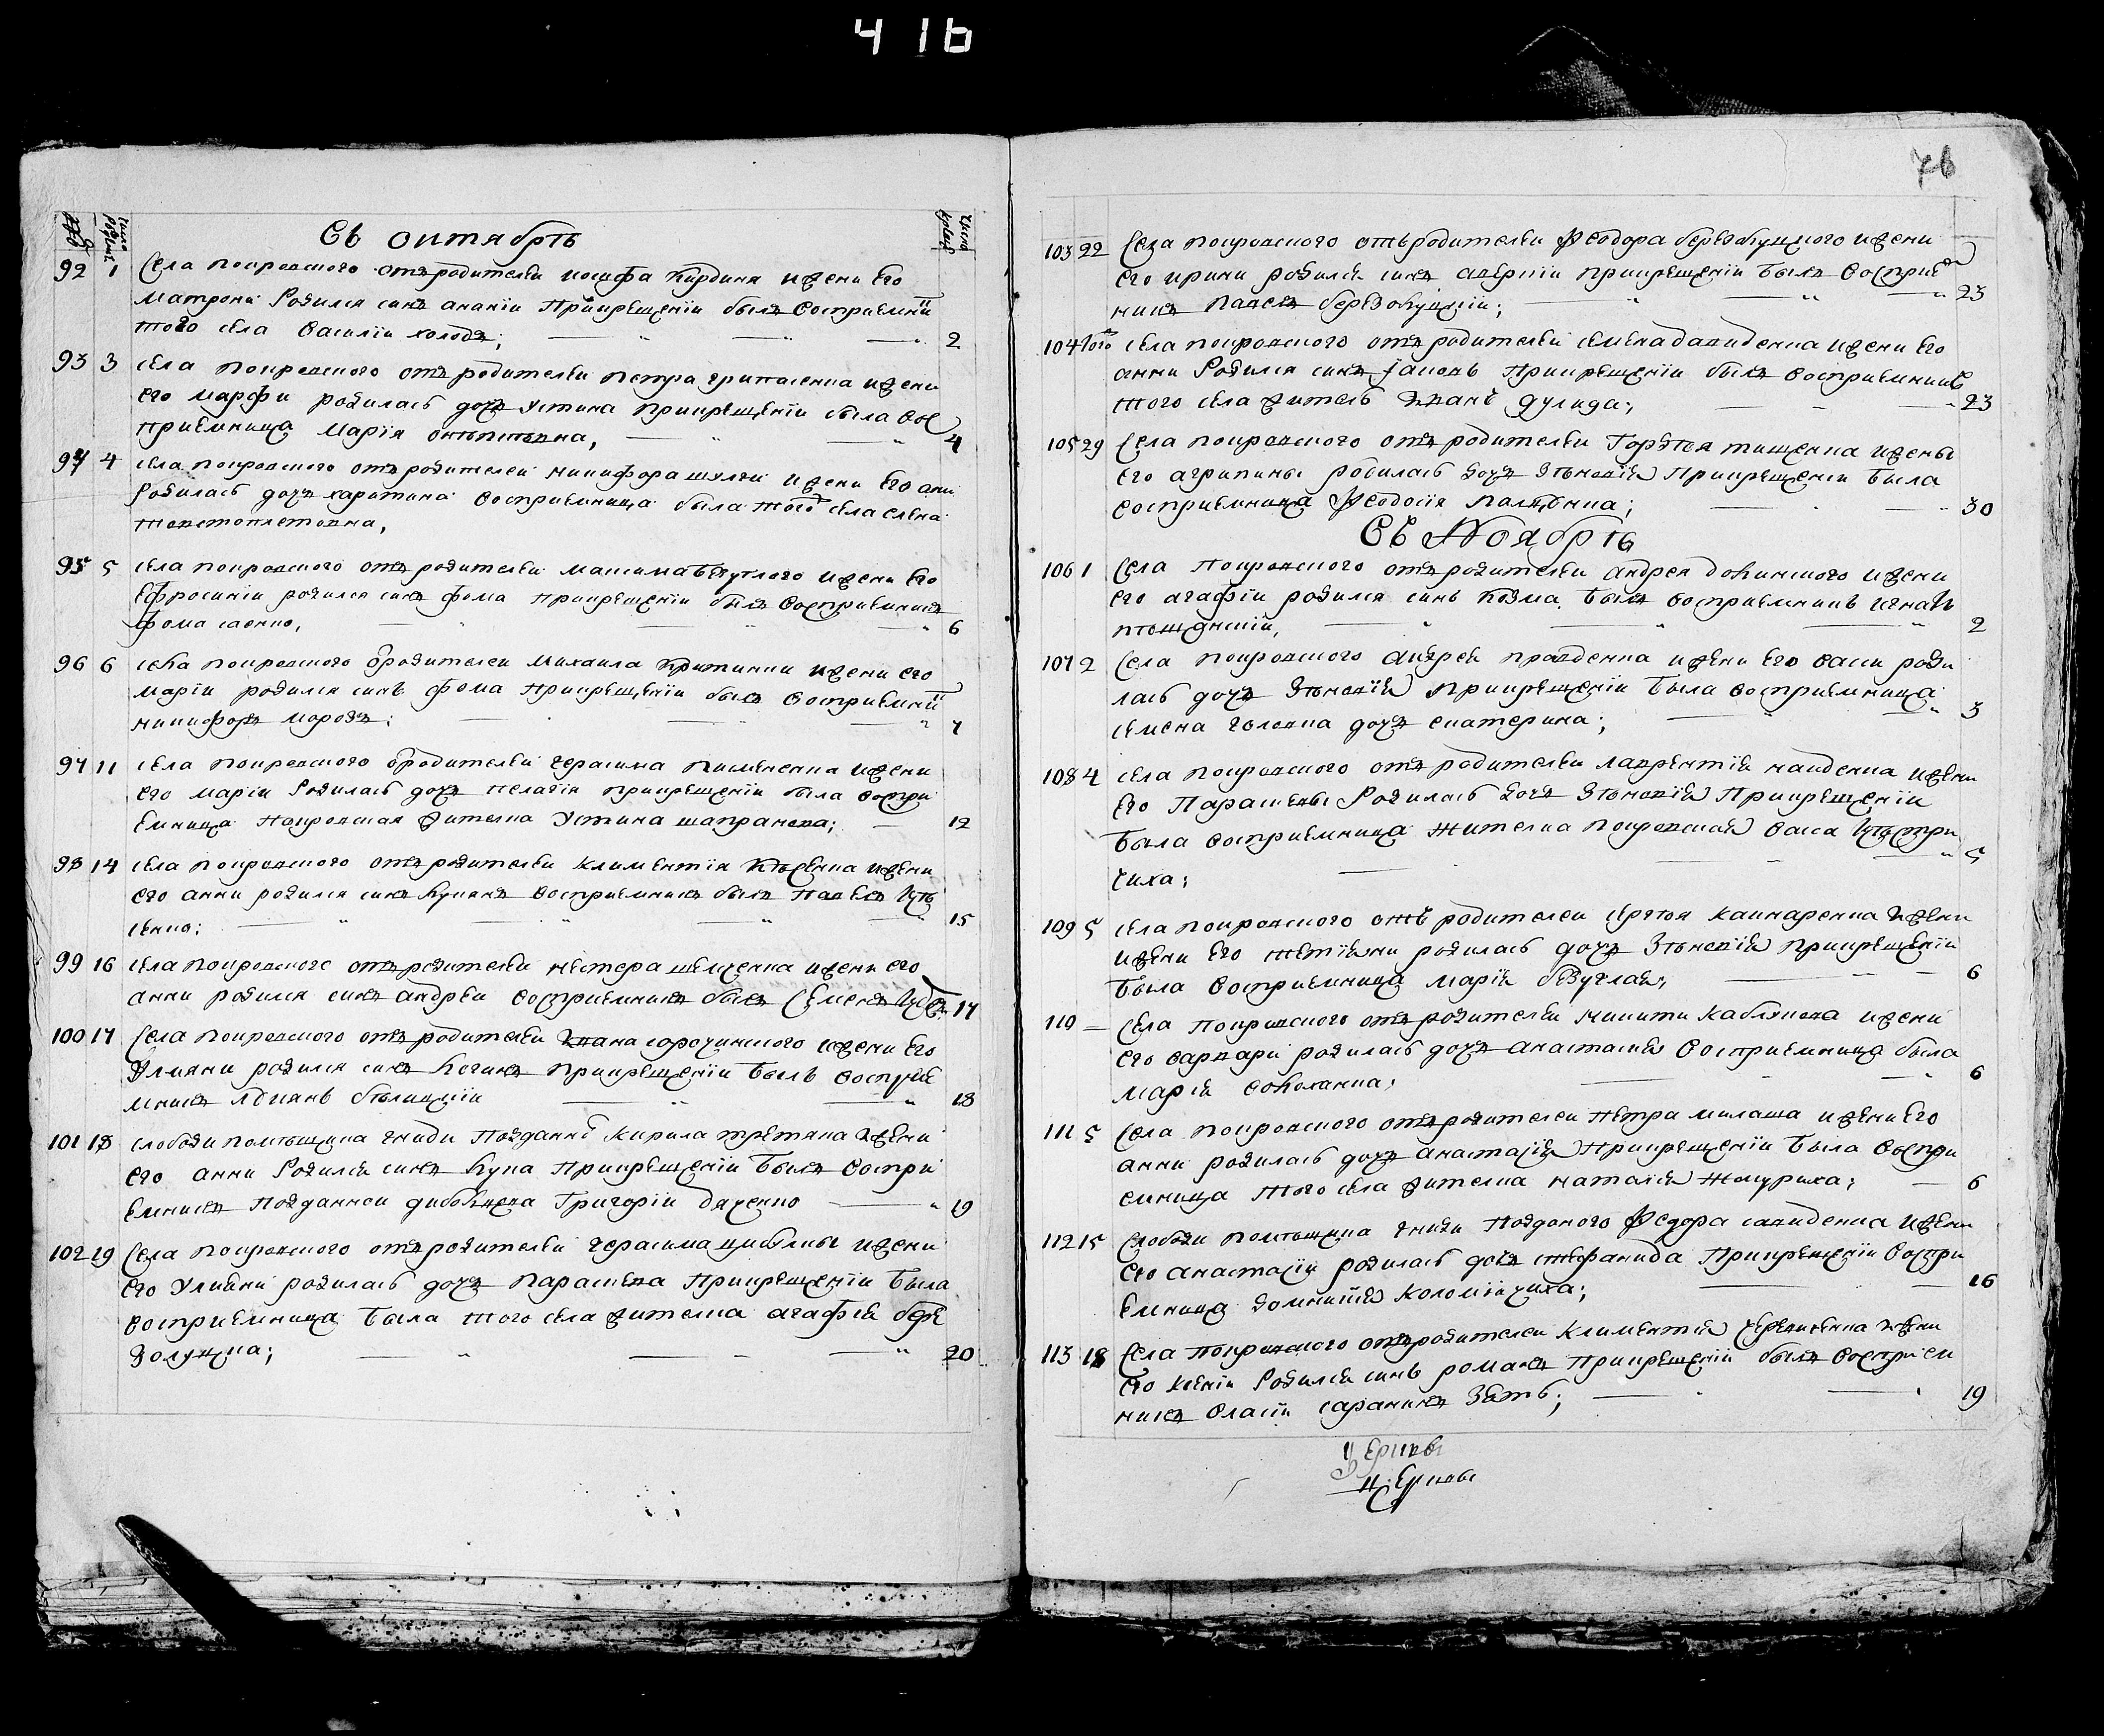 416
76
Въ октябрѣ
92 1 Села покровского отъ родителей иосифа кирдина и жени Его
матрони Родился синъ ананіи При крещеніи былъ восприемни
того села василіи холодъ; 2
93 3 села покровского отъ родителей петра грипасенка и жени
его марфи родилась дочъ устина при крещеніи была вос
приемница марія 4
94 4 села покровского отъ родителей никифора шулги и жени Его ани
Родилась дочъ харитина восприемница была того села елена
95 5 села покровского отъ родителей максима безуглого и жени Его
Ефросиніи родился синъ фома при крещеніи былъ восприемникъ
фома саенко, 6
96 6 села покровского от родителей михаила критинки и жени его
маріи родился синъ фома При крещеніи былъ восприемни
никифоръ морозъ; 7
97 11 села покровского от родителей герасима пилипенка и жени
его маріи Родилась дочъ пелагія при крещеніи была воспри
емница Покровская жителка Устина шапранова; 12
98 14 села покровского отъ родителей климентія и жени
его анни родился синъ лукіянъ восприемникъ былъ павелъ
сенко; 15
99 16 села покровского отъ родителей нестера шевченка и жени его
анни родился синъ андреи восприемникъ былъ Семенъ 17
100 17 Села покровского отъ родителей Ивана сорочинского и жени Его
Улияни родился синъ логинъ при крещеніи былъ воспріе
мникъ Адиянъ былицкіи 18
101 18 слободи помѣщика гниди Подданни кирила третяка и жени
его анни Родился синъ лука При крещеніи былъ воспри
емникъ Подданнеи Григоріи дяченко 19
102 19 Села покровского отъ родителей герасима цибулки и жени
его улияни родилась дочъ парасцева При крещеніи была
восприемница была того села жителка агафія бере
золуцка; 20
103 22 Села покровского отъ родителей Феодора березолуцкого и жени
его ирини родился синъ аверкіи при крещеніи былъ восприе
никъ павелъ березолуцкіи; 23
104 того села покровского отъ родителей семена давиденка и жени Его
анни Родился синъ иаковъ При крещеніи былъ восприемникъ
того села житель Иванъ дулида; 23
105 29 Села покровского отъ родителей Гордея тищенка и жены
Его агрипины родилась дочъ Зѣновія При крещеніи была
восприемница Феодосія 30
Въ Ноябрѣ
106 1 Села покровского отъ родителей андрея долинского и жени
его агафіи родился синъ козма, былъ восприемникъ игнатъ
2
107 2 Села покровского андрея правденка и жени Его васи роди
лась дочъ Зѣновія При крещеніи была восприемница
семена головка дочъ екатерина; 3
108 4 села покровского отъ родителей лаврентія наиденка и жени
Его Парасцевы Родилась дочъ Зѣновія При крещеніи
была восприемница жителка покровская васса
чиха; 5
109 5 села покровского отъ родителей сергея каинаренка и жени
и жени Его тетіяни родилась дочъ Зѣновія при крещеніи
была восприемница марія безуглая; 6
110 — Села покровского отъ родителей никити каблукова и жени
его варвари родилась дочъ анастасія восприемница была
марія соколанка; 6
111 5 Села покровского отъ родителей петра милаша и жени Его
анни родилась дочъ анастасія При крещеніи была воспри
емница того села жителка наталія жмуриха; 6
112 15 Слободи помѣщика гниди Подданого Федора савиденка и жени
его анастасіи родилась дочъ стефанида При крещеніи воспри
емница домникія коломіичиха; 16
113 18 Села покровского отъ родителей климентія и жени
Его ксеніи Родился синъ романъ При крещеніи былъ восприем
никъ власіи саранинъ зять; 19
Церкви
Церкви